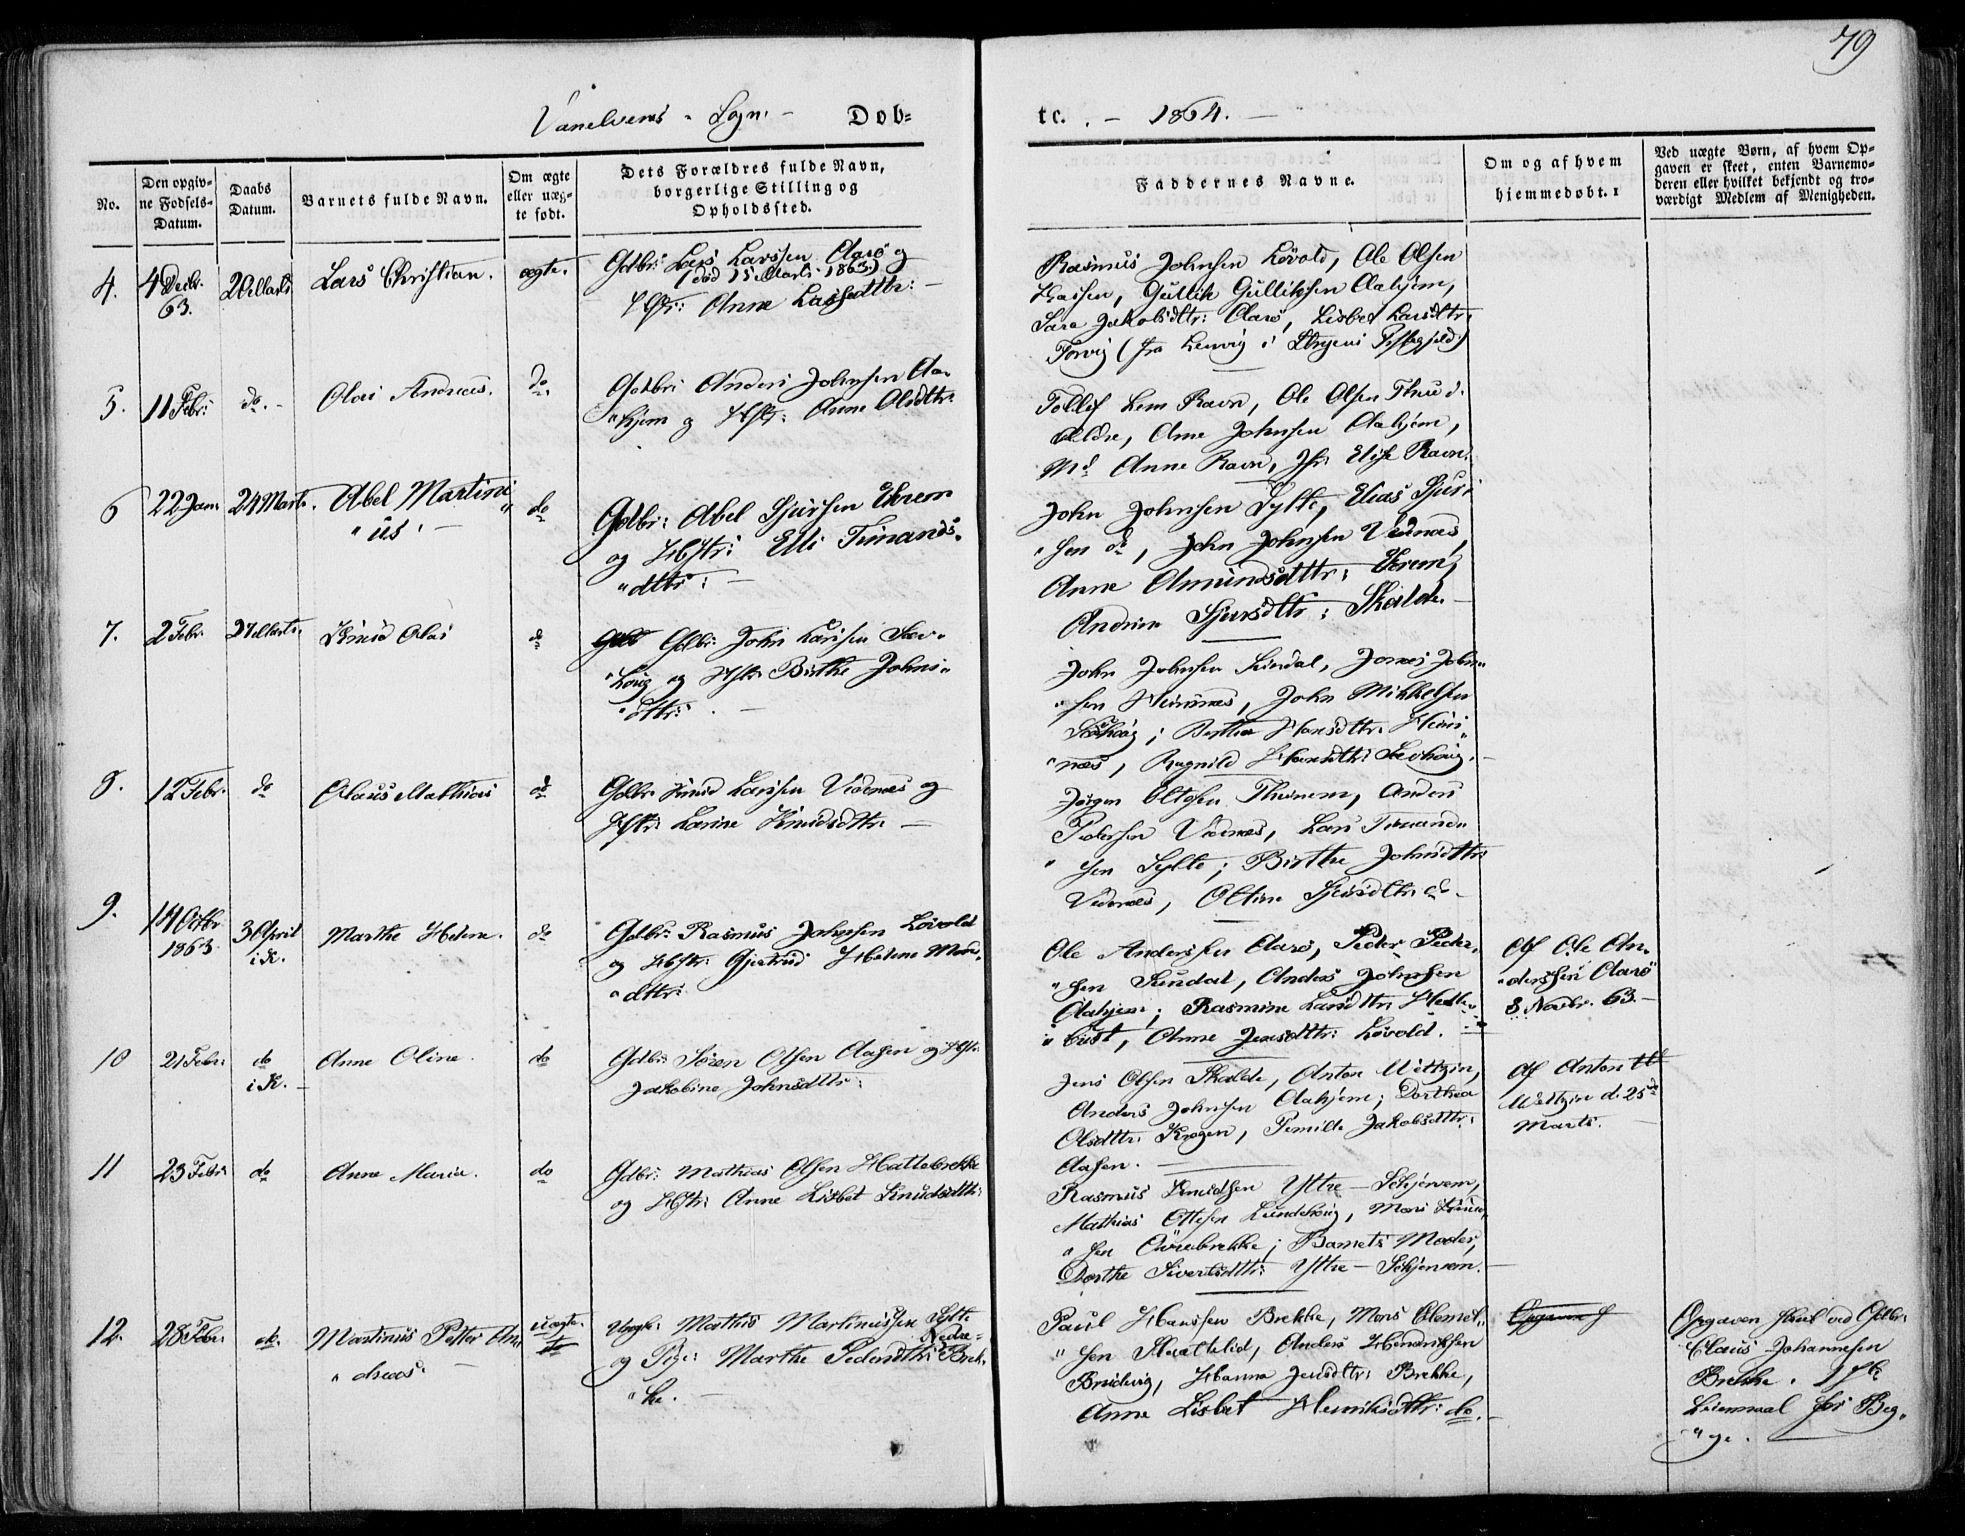 79
Vanelvens - Sogn - Døb=
te. - 1864. -
No.
Den opgiv-
ne Fødsels-
Datum.
Daabs
Datum.
Barnets fulde Navn.
Om ægte
eller uæg-
te født.
Dets Forældres fulde Navn,
borgerlige Stilling og
Opholdssted.
Faddernes Navne.
Om og af hvem
hjemmedøbt.
Ved uægte Børn, af hvem Op-
gaven er skeet, enten Barnemo-
deren eller hvilket bekjendt og tro-
værdigt Medlem af Menigheden.
4. 4 Decbr. 63. 20 Marts Lars Christian. ægte.
Gdbr: Lars Larssen Aarø og
(død 15 Marts 1863)
Hstr: Anne Larsdttr: -
Rasmus Johnsen Løvold, Ole Olsen
Aasen, Gullik Gulliksen Aahjem,
Sara Jakobsdttr: Aarø, Lisbet Larsdttr:
Torvig (fra Lenvig i Stryens Præstegjeld)
5. 11 Febr: do. - Olai Andreas. do
Gdbr: Anders Johnsen Aa-
"hjem og Hstr: Anne Olsdttr:
Tollef Lem Ravn, Ole Olsen Thue d.
Ældre, Arne Johnsen Aahjem,
Md Anne Ravn, Jfr: Elise Ravn.
6 22 Jan: 24 Marts. Abel Martini
"us. - do
Gdbr: Abel Sjursen Ehrem
og Hstr: Elli Timands-
"dttr: -
John Johnsen Sylte, Elias Sjur-
"sen do, John Johnsen Vednæs,
Anne Amundsdttr: Ehrem,
Andrine Sjursdttr: Skalde.
7. 2 Febr. 27 Marts. Knud Olai do
Gdbr: John Larsen Sæv-
"houg og Hstr: Birthe Johns-
"dttr: -
John Johnsen Sundal, Jonas John-
"sen Huunnæs, John Mikkelsen
Sævhoug; Berthe Hansdttr: Huun-
"næs, Ragnild Hansdttr: Sævhoug.
8. 12 Febr. do Olaus Mathias do
Gdbr: Knud Larssen Vednæs og
Hstr: Larine Knudsdttr: -
Jørgen Eltosen Thunem, Anders
Pedersen Vednæs, Lars Timand-
"sen Sylte; Birthe Johnsdttr:
Vednæs, Oline Sjursdttr: do -
9. 14 Octbr. 1863 3 April i K. Marthe Helene. do
Gdbr: Rasmus Johnsen Løvold
og Hstr: Gjertrud Helene Mons-
"dttr:
Ole Anderssen Aarø, Peder Peder-
"sen Sundal, Anders Johnsen
Aahjem; Rasmine Larsdttr: Hedle-
"bust, Anne Jensdttr: Løvold.
Af Ole An-
"derssen Aarø
8 Novbr. 63. -
10 21 Febr: do i K. - Anne Oline. do
Gdbr: Søren Olsen Aasen og Hstr:
Jakobine Johnsdttr:
Jens Olsen Skalde, Anton Wiltzin,
Anders Johnsen Aahjem; Dorthea
Olsdttr: Krogen, Pernille Jakobsdttr:
Aasen. -
Af Anton
Wiltzin d. 25de
Marts.
11 23 Febr: do Anne Maria. do
Gdbr: Mathias Olsen Hattebrekke
og Hstr: Anne Lisbet Knudsdttr:
Rasmus Knudsen Yttre-Schjerven,
Mathias Ottesen Lundehoug, Mons Knud-
"sen Aurebrekke; Barnets Moder,
Dorthe Sivertsdttr: Yttre-Schjerven.
12. 28 Febr: do. Martinus Petter An-
"dreas. - uægte.
Ungk: Mathis Martinussen Sylte
og Pige: Marthe Pedersdttr: Nedre-Brek-
"ke. -
Paul Hanssen Brekke, Mons Clemet-
"sen Haatklid, Anders Hendriksen
Brudevig, Hanna Jensdttr: Brekke,
Anne Lisbet Henriksdttr: do. -
Opgaven
Opgaven skeet ved Gdbr:
Claus Johannesen
Brekke. 1ste
Leiermaal for Beg-
"ge. -